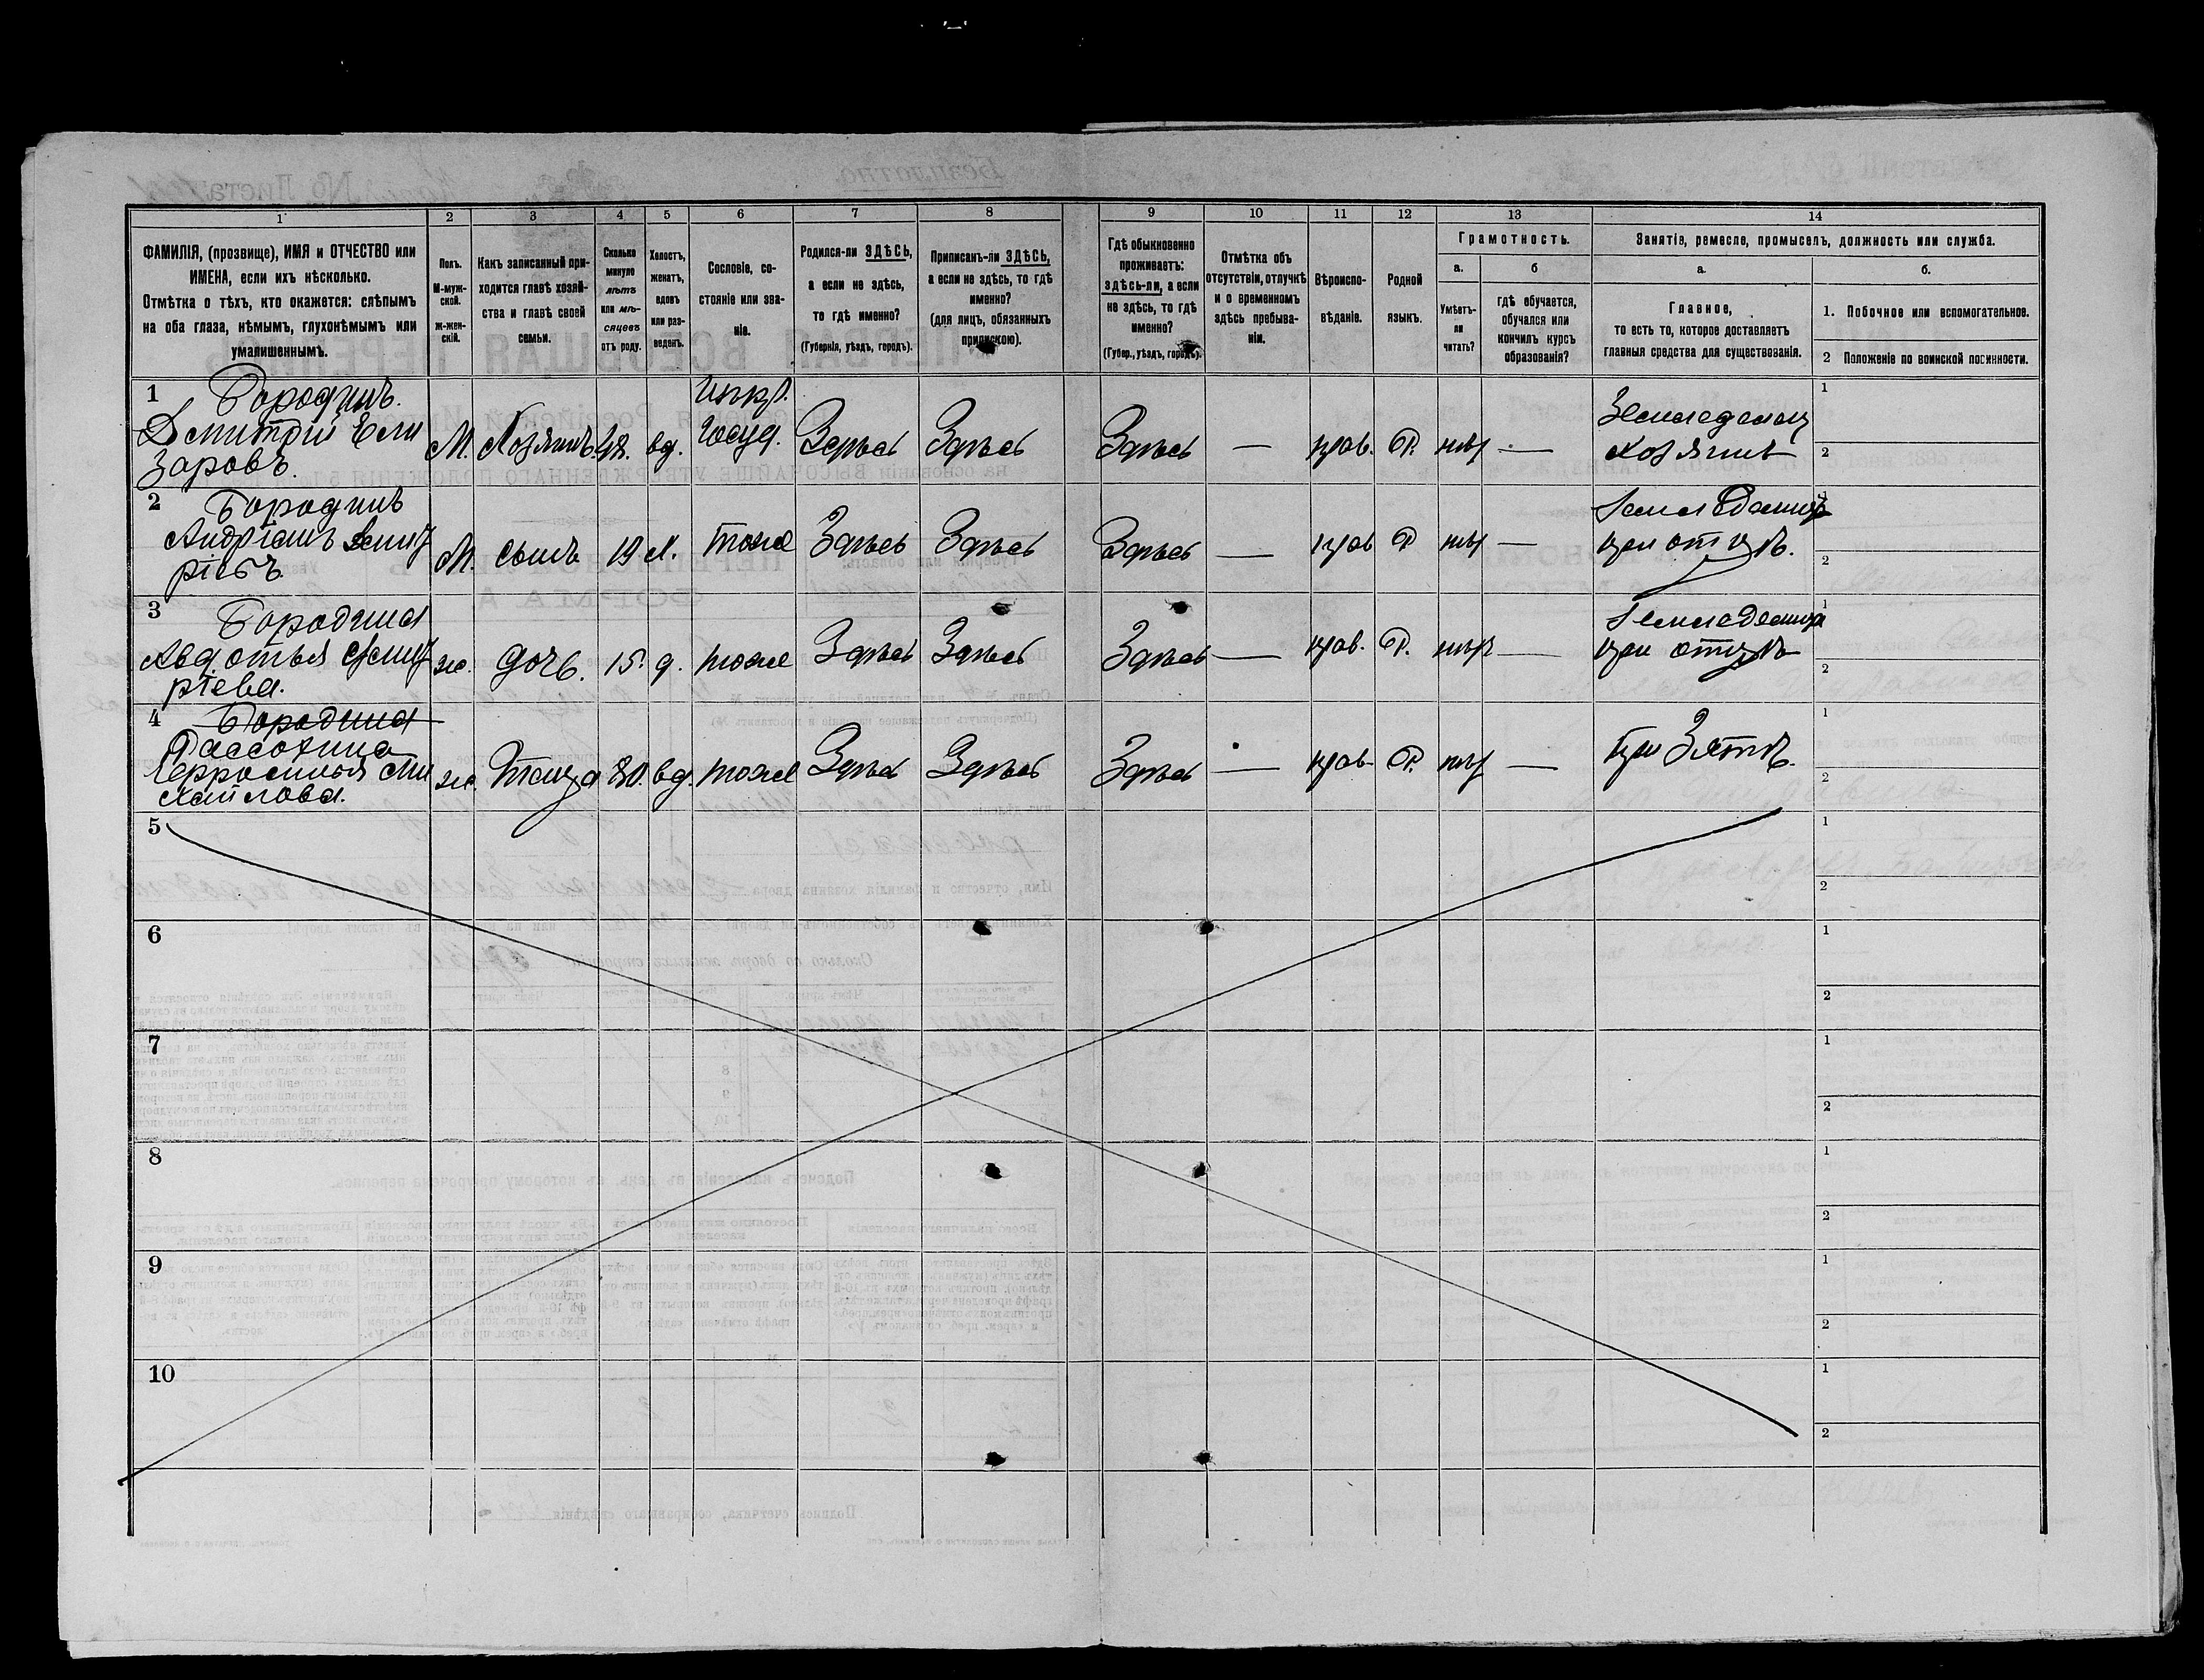 1 2 3 4 5 6 7 8 9 10 11 12 13 14
ФАМИЛІЯ, (прозвище), ИМЯ и ОТЧЕСТВО или
ИМЕНА, если ихъ нѣсколько.
Отмѣтка о тѣхъ, кто окажется: слѣпымъ
на оба глаза, нѣмымъ, глухонѣмымъ или
умалишеннымъ.
Полъ.
М-муж-
ской.
ж-жен-
скій.
Какъ записанный при-
ходится главѣ хозяй-
ства и главѣ своей
семьи.
Сколько
минуло
лѣтъ
или мѣ-
сяцевъ
отъ роду.
Холостъ,
женатъ,
вдовъ
или раз-
веденъ.
Сословіе, со-
стояніе или зва-
ніе.
Родился-ли ЗДѢСЬ,
а если не здѣсь,
то гдѣ именно?
(Губернія, уѣздъ, городъ).
Приписанъ-ли ЗДѢСЬ,
а если не здѣсь, то гдѣ
именно?
(для лицъ, обязанныхъ
припискою).
Гдѣ обыкновенно
проживаетъ:
здѣсь-ли, а если
не здѣсь, то гдѣ
именно?
(Губер., уѣздъ, городъ).
Отмѣтка объ
отсутствіи, отлучкѣ
и о временномъ
здѣсь пребыва-
ніи.
Вѣроиспо-
вѣданіе.
Родной
языкъ.
Грамотность.
а.
Умѣетъ-
ли
читать?
б
гдѣ обучается,
обучался или
кончилъ курсъ
образованія?
Занятіе, ремесло, промыселъ, должность или служба.
а.
Главное,
то есть то, которое доставляетъ
главныя средства для существованія.
б.
1. Побочное или вспомогательное.
2 Положеніе по воинской повинности.
1 Бородинъ
Дмитрій Ели
заровъ. М. Хозяинъ 48. вд. госуд. Здѣсь Здѣсь Здѣсь — прав. Р. нѣт — Земледелец
хозяинъ 1 2
2 Бородинъ
Андріанъ Дмит
ріевъ. М. сынъ 19 х. тоже Здѣсь Здѣсь Здѣсь — прав Р нѣт —
при отцѣ. 1 2
3 Бородина
Авдотья Дмит
ріева. ж. дочь. 15. д. тоже Здѣсь Здѣсь Здѣсь — прав. Р. нѣт —
при отцѣ 1 2
4 Бородина
Михайлова. ж. теща 80. вд. тоже Здѣсь Здѣсь Здѣсь — прав. Р. нѣт — при Зятѣ. 1 2
5 1 2
6 1 2
7 1 2
8 1 2
9 1 2
10 1 2